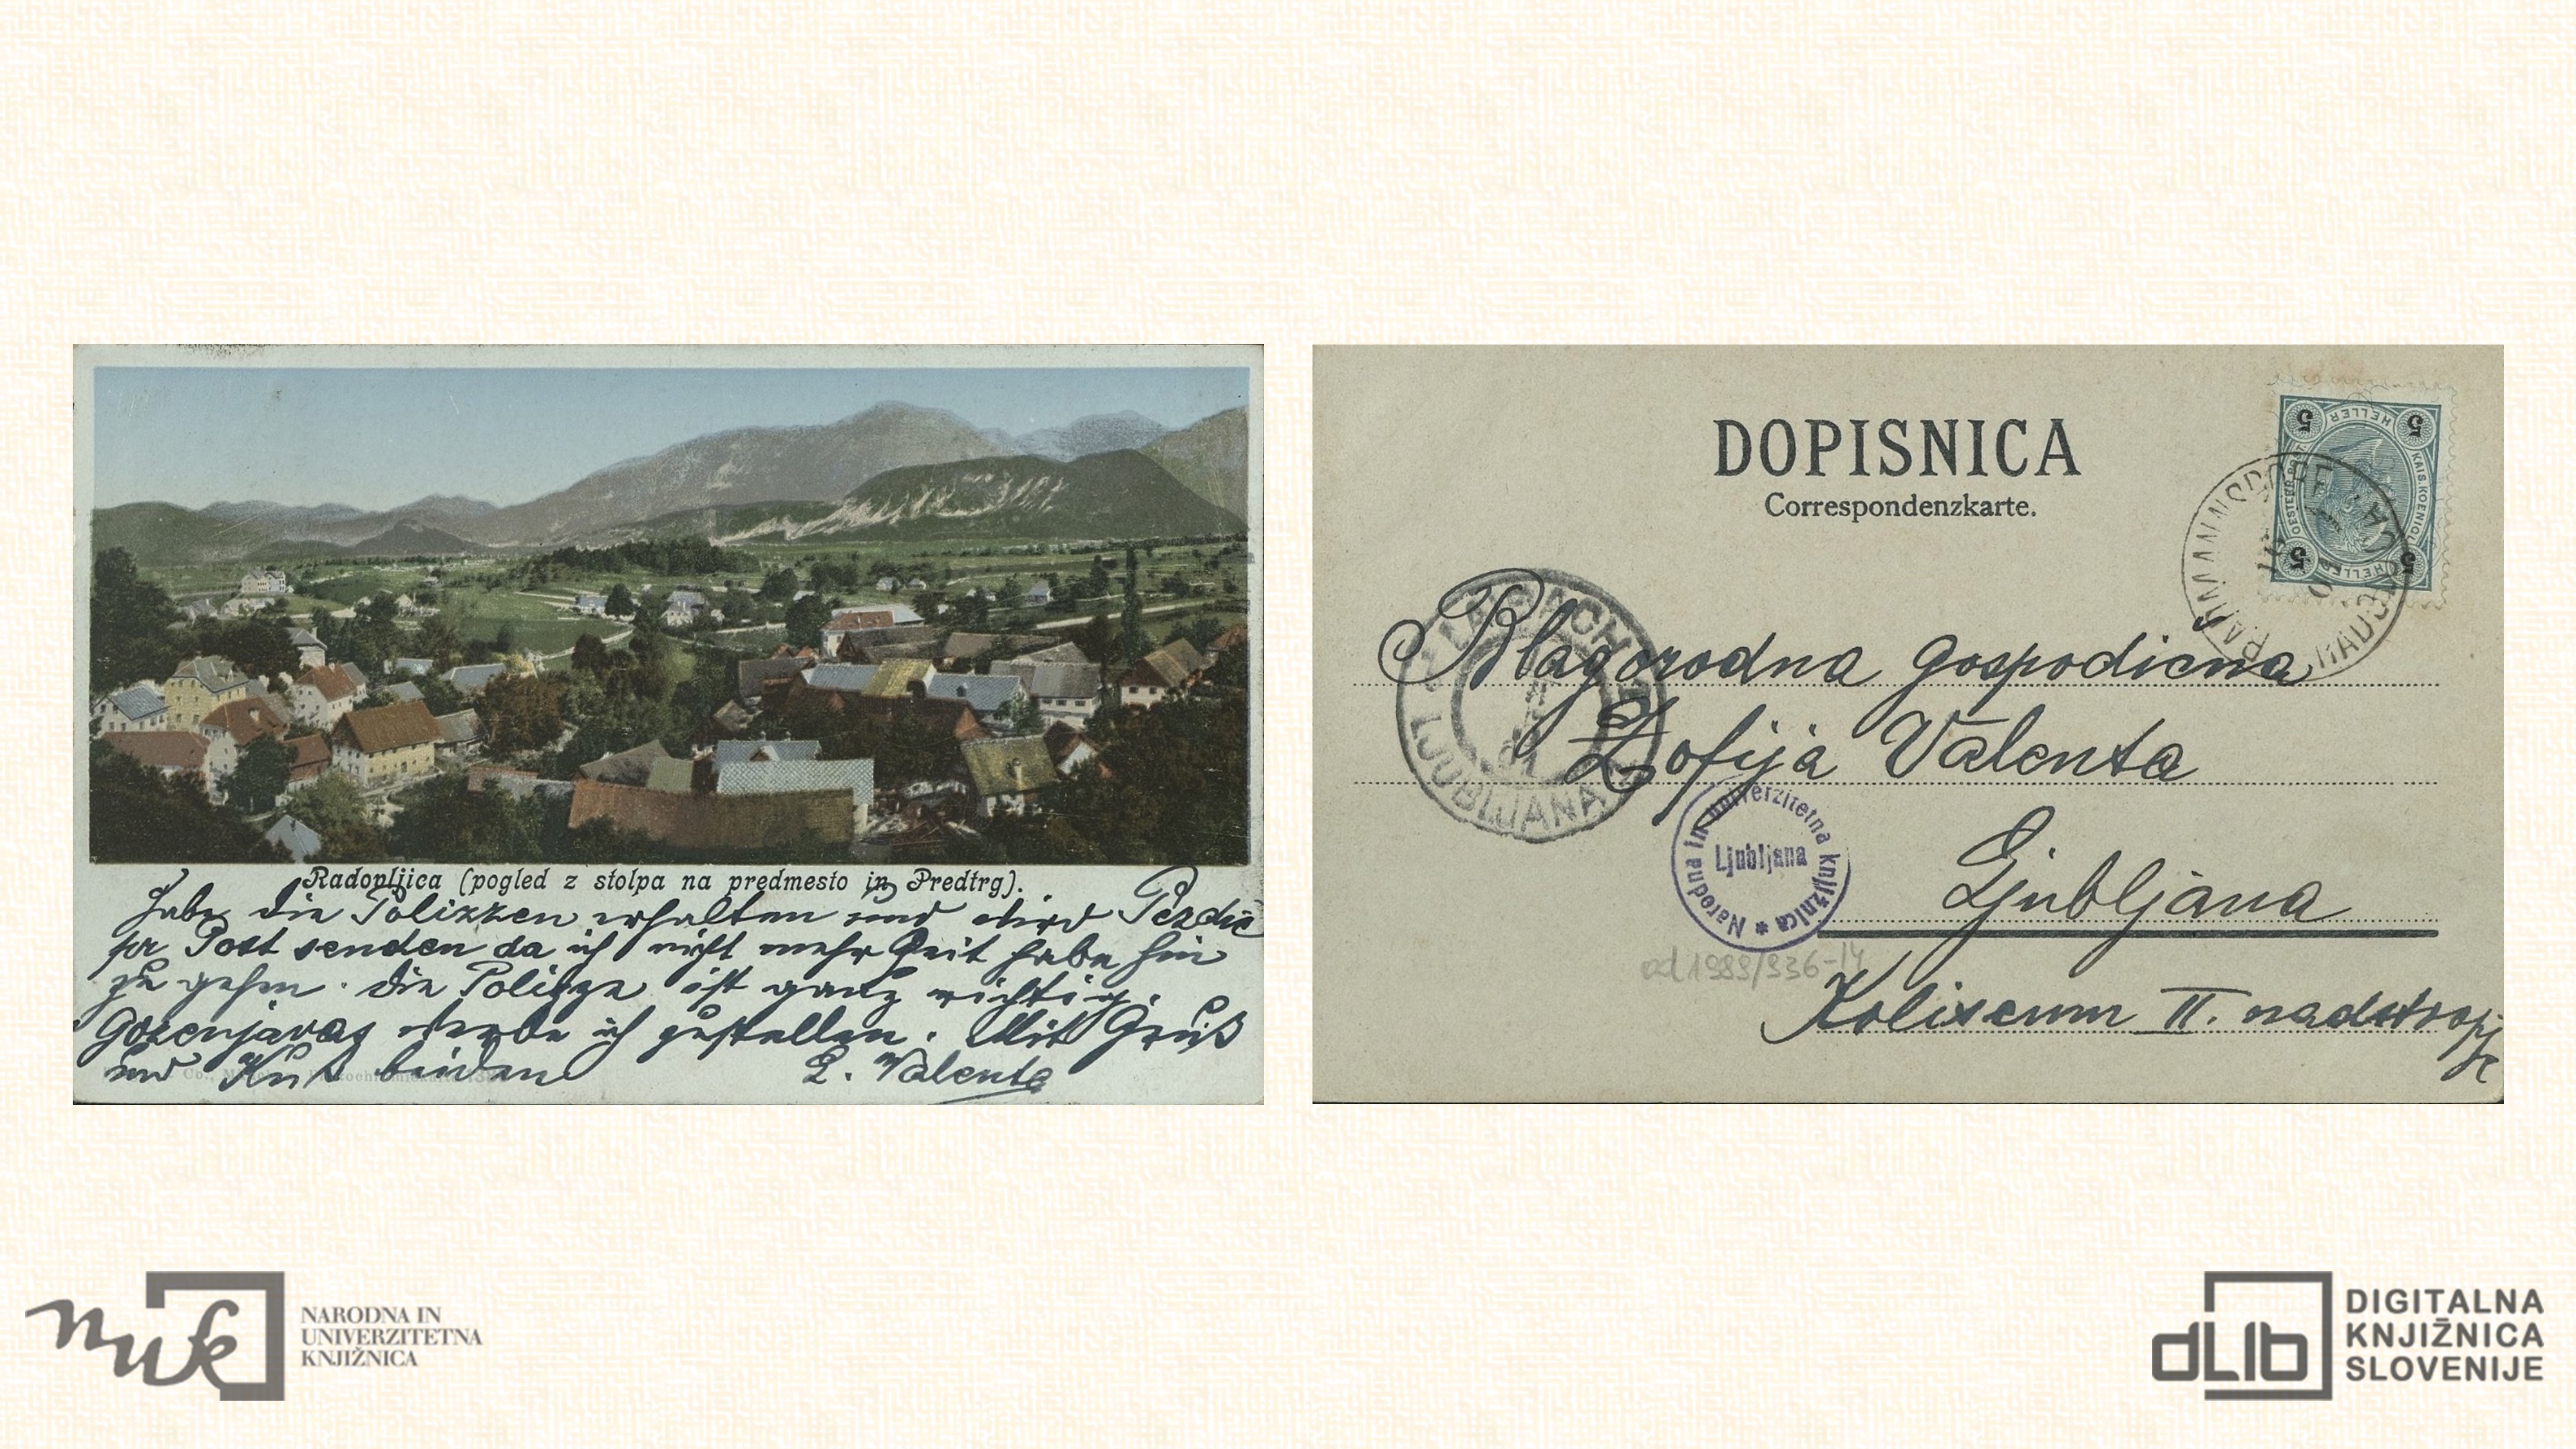 Radovljica (pogled z stolpa na predmesto in Predtrg).
Habe die Polizzen erhalten und wird Pezdič
pr Post senden da ich nicht mehr Zeit habe hin
zu gehen. Die Polizze ist ganz richtig.
Gorenjavas werde ich zustellen. Mit Gruß
und Kuß beiden
L. Valenta
DOPISNICA
Correspondenzkarte.
5 HELLER 5
KAIS. KOENIGL.
OESTERR. POST
5 HELLER 5
RADMANNSDORF
LAIBACH
LJUBLJANA
Blagorodna gospodična
Zofija Valenta
Narodna in univerzitetna knjižnica *
Ljubljana
Ljubljana
od 1989/936-14
Koliseum II. nadstropje
nuk
NARODNA IN
UNIVERZITETNA
KNJIŽNICA
dLib
DIGITALNA
KNJIŽNICA
SLOVENIJE